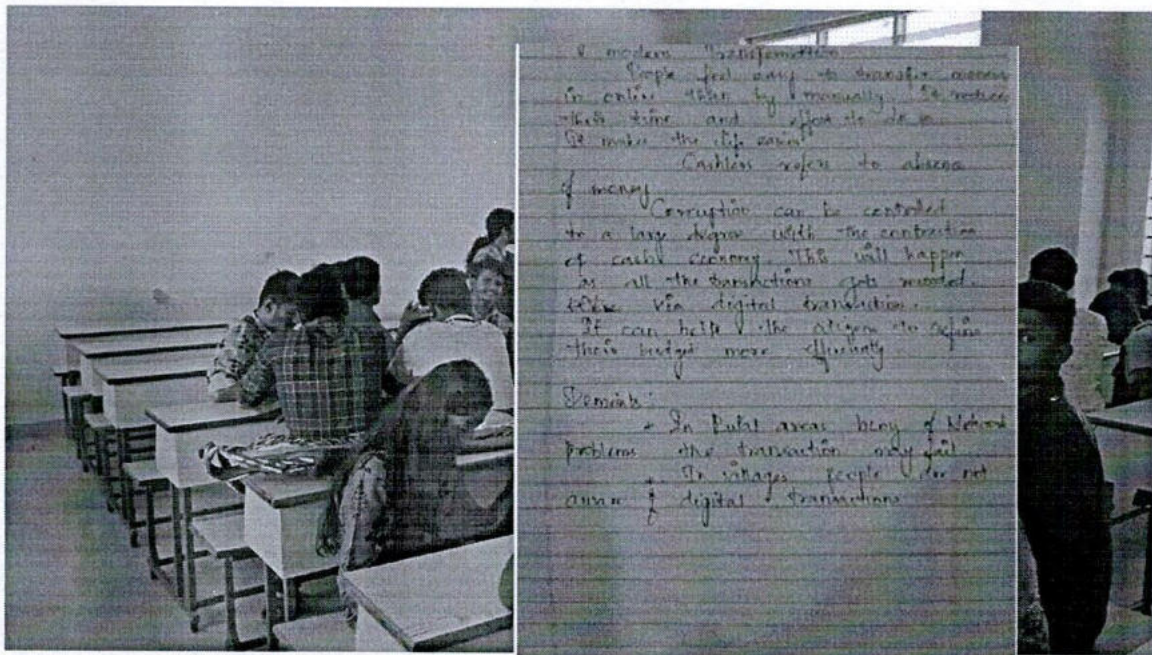 & modern Transformation
People feel easy to transfer money
in online than by manually. It reduce
their time and effort to do so.
It makes the life easier
Cashless refers to absence
of money
Corruption can be controlled
to a large degree with the contraction
of cash economy. This will happen
as all the transactions gets recorded
via digital transaction.
It can help the citizens to define
their budget more efficiently
Demerits:
+ In Rural areas bcoz of Network
problems the transaction may fail
+ In villages people are not
aware of digital transactions